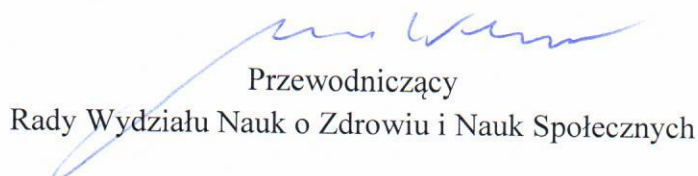 Przewodniczący
Rady Wydziału Nauk o Zdrowiu i Nauk Społecznych